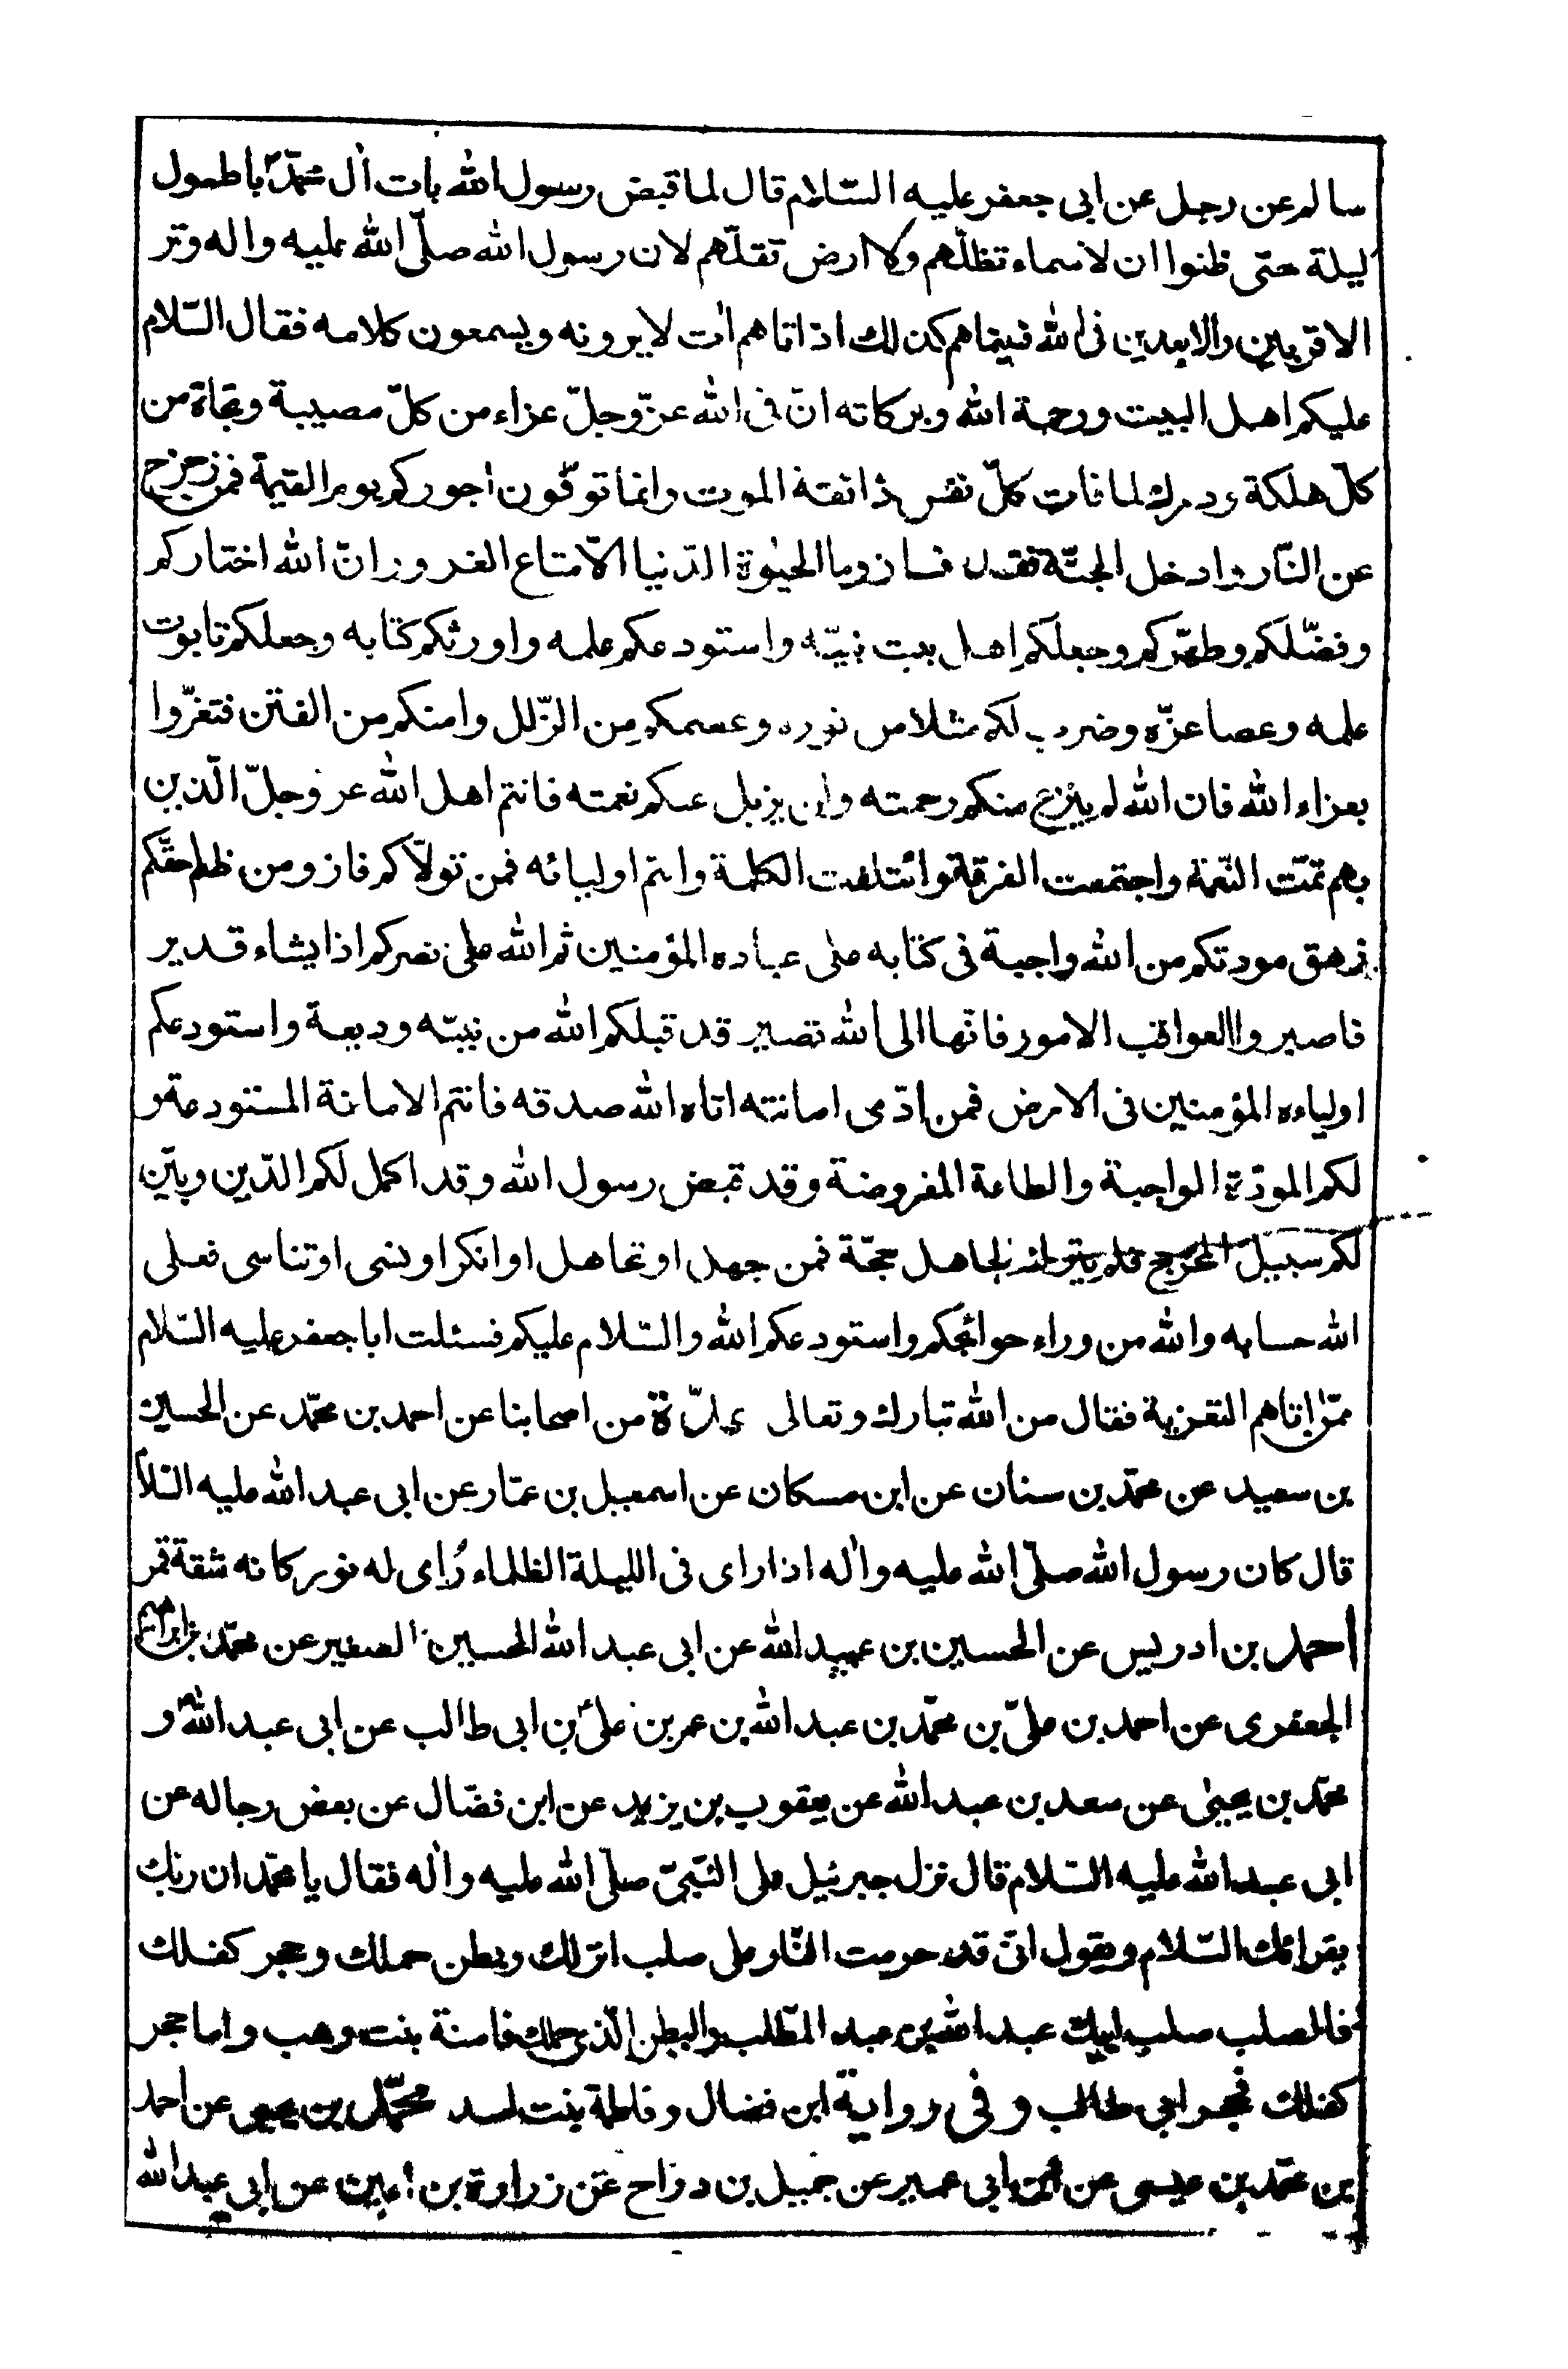 سالم عن رجل عن ابى جعفر عليه السّلام قال لما قبض رسول الله بات اٰل محمّد ؐ باطول
ليلة حتى ظنوا ان لا سماء تظلّهم ولا ارض تقلّهم لان رسول الله صلّى الله عليه واله وتر
الاقربين والابعدين فى الله فبيناهم كذلك اذ اتاهم اٰت لا يرونه ويسمعون كلامه فقال السّلام
عليكم اهل البيت ورحمة الله وبركاته انّ فى الله عزّ وجلّ عزاء من كلّ مصيبة ونجاة من
كلّ هلكة ودرك لما فات كلّ نفس ذائقة الموت وانما توفّون اجوركم يوم القيمة فمن زحزح
عن النّار وادخل الجنّة فقد فاز وما الحيٰوة الدّنيا الّا متاع الغرور انّ الله اختاركم
وفضّلكم وطهّركم وجعلكم اهل بيت نبيّه واستودعكم علمه واورثكم كتابه وجعلكم تابوت
علمه وعصا عزّه وضرب لكم مثلا من نوره وعصمكم من الزّلل وامنكم من الفتن فتعزّوا
بعزاء الله فان الله لم ينزع منكم رحمته ولن يزيل عنكم نعمته فانتم اهل الله عز وجلّ الّذين
بهم تمّت النّعمة واجتمعت الفرقة وائتلفت الكلمة وانتم اوليائه فمن تولّاكم فاز ومن ظلم حقّكم
زهق مودتكم من الله واجبة فى كتابه على عباده المؤمنين ثم الله على نصركم اذا يشاء قدير
فاصبروا العواقب الامور فانّها الى الله تصير قد قبلكم الله من نبيّه وديعة واستودعكم
اولياءه المؤمنين فى الارض فمن ادّى امانته اتاه الله صدقه فانتم الامانة المستودعة و
لكم المودّة الواجبة والطاعة المفروضة وقد قبض رسول الله وقد اكمل لكم الدّين وبيّن
لكم سبيل المخرج فلم يترك لجاهل حجّة فمن جهل او تجاهل او انكر او نسى او تناسى فعلى
الله حسابه والله من وراء حوائجكم واستودعكم الله والسّلام عليكم فسئلت ابا جعفر عليه السّلام
ممّن اتاهم التعزية فقال من الله تبارك وتعالى عدّة من اصحابنا عن احمد بن محمّد عن الحسين
بن سعيد عن محمّد بن سنان عن ابن مسكان عن اسمعيل بن عمّار عن ابى عبد الله عليه السّلا
قال كان رسول الله صلّى الله عليه واٰله اذا راى فى الليلة الظلماء رُاى له نور كانه شقة قمر
احمد بن ادريس عن الحسين بن عبيد الله عن ابى عبد الله الحسين الصغير عن محمّد بن ابراهيم
الجعفرى عن احمد بن علىّ بن محمّد بن عبد الله بن عمر بن علىّ بن ابى طالب عن ابى عبد الله ؑ و
محمّد بن يحيىٰ عن سعد بن عبد الله عن يعقوب بن يزيد عن ابن فضّال عن بعض رجاله عن
ابى عبد الله عليه السّلام قال نزل جبرئيل على النّبىّ صلّى الله عليه واٰله فقال يا محمّد ان ربّك
يقرائك السّلام ويقول انّى قد حرمت النّار على صلب انزلك وبطن حملك وحجر كفلك
فالصلب صلب ابيك عبد الله بن عبد المطّلب والبطن الّذى حملك فامنة بنت وهب واما حجر
كفلك فحجر ابى طالب وفى رواية ابن فضال وفاطمة بنت اسد محمّد بن يحيى عن احمد
بن محمّد بن عيسى عن ابن ابى عمير عن جميل بن دراج عن زرارة بن اعين عن ابى عبد الله